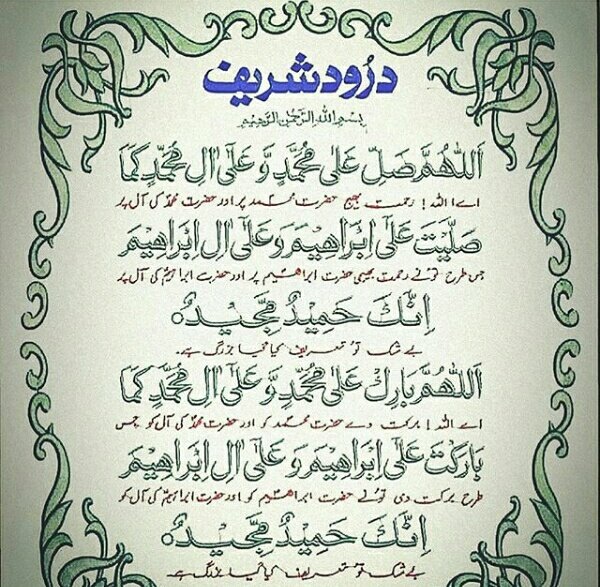 درود شریف
بسم الله الرحمن الرحیم
اَللّٰهُمَّ صَلِّ عَلٰی مُحَمَّدٍ وَّ عَلٰٓی اٰلِ مُحَمَّدٍ کَمَا
اے اللہ! رحمت بھیج حضرت محمد پر اور حضرت محمدؐ کی آل پر
صَلَّیْتَ عَلٰٓی اِبْرَاهِیْمَ وَ عَلٰٓی اٰلِ اِبْرَاهِیْمَ
جس طرح تو نے رحمت بھیجی حضرت ابراھیم پر اور حضرت ابراہیمؑ کی آل پر
اِنَّکَ حَمِیْدٌ مَّجِیْدٌ○
بے شک تو تعریف کیا گیا بزرگ ہے۔
اَللّٰهُمَّ بَارِكْ عَلٰی مُحَمَّدٍ وَّ عَلٰٓی اٰلِ مُحَمَّدٍ کَمَا
اے اللہ! برکت دے حضرت محمد کو اور حضرت محمدؐ کی آل کو جس
بَارَکْتَ عَلٰٓی اِبْرَاهِیْمَ وَ عَلٰٓی اٰلِ اِبْرَاهِیْمَ
طرح برکت دی تو نے حضرت ابراھیم کو اور حضرت ابراہیمؑ کی آل کو
اِنَّکَ حَمِیْدٌ مَّجِیْدٌ○
بے شک تو تعریف کیا گیا بزرگ ہے۔